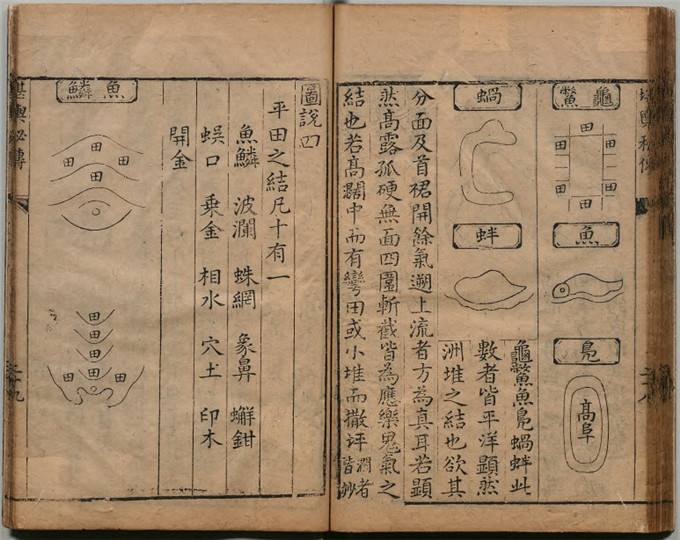 龜鱉
田
田 田
田 田
田
魚
鳧
高阜
蝸
蚌
龜鱉魚鳧蝸蚌此
數者皆平洋顯然
洲堆之結也欲其
分面及首裙開餘氣遡上流者方為真耳若顯
然高露孤硬無面四圍斬截皆為應樂鬼氣之
結也若高濶中而有彎田或小堆而撒坪濶者皆妙
圖說四
平田之結凡十有一
魚鱗 波瀾 蛛網 象鼻 蠏鉗
蜈口 乘金 相水 穴土 印木
開金
魚鱗
田
田 田
田
田
田
田
田 田 田
堪輿秘傳